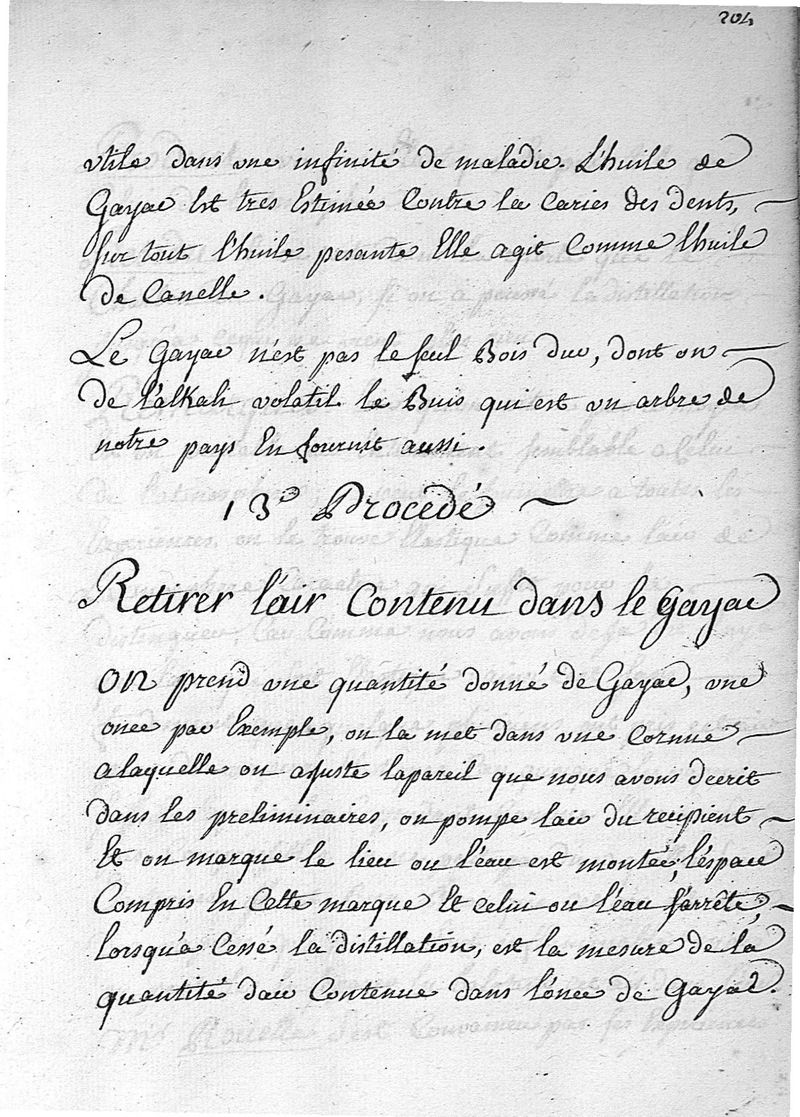 204
utile dans une infinité de maladie. L'huile de
Gayac Est tres Estimée Contre la caries des dents,
sur tout l'huile pesante Elle agit Comme l'huile
de Canelle.
Le Gayac n'est pas le seul Bois dur, dont on
de l'alkali volatil le Buis qui est un arbre de
notre pays En fournit aussi.
13e Procedé
Retirer l'air Contenu dans le Gayac
on prend une quantité donné de Gayac, une
once par Exemple, on la met dans une cornue
a laquelle on ajuste lapareil que nous avons decrit
dans les preliminaires, on pompe lair du recipient
Et on marque le lieu ou l'eau est montée, l'éspace
Compris En Cette marque Et celui ou l'eau s'arrête,
lorsqu'a Cessé la distillation, est la mesure de la
quantité dair Contenue dans l'once de Gayac.